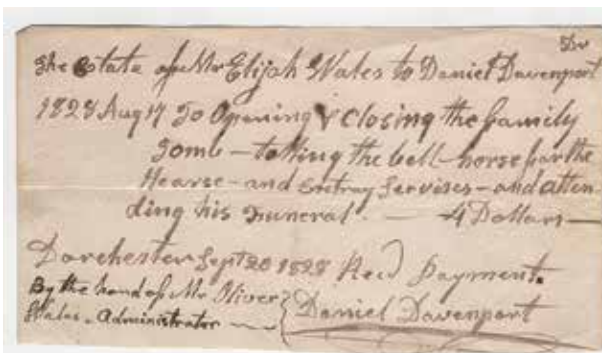 Dr
The Estate of Mr Elijah Wales to Daniel Davenport
1828 Aug 17 To Opening & Closing the family
Tomb - tolling the bell - horse for the
Hearse - and Extray Servises - and atten
ding his Funeral. - 4 Dollars -
Dorchester Sept 20 1828 Recd Payment.
By the hand of Mr Oliver
Wales. Administrator
Daniel Davenport